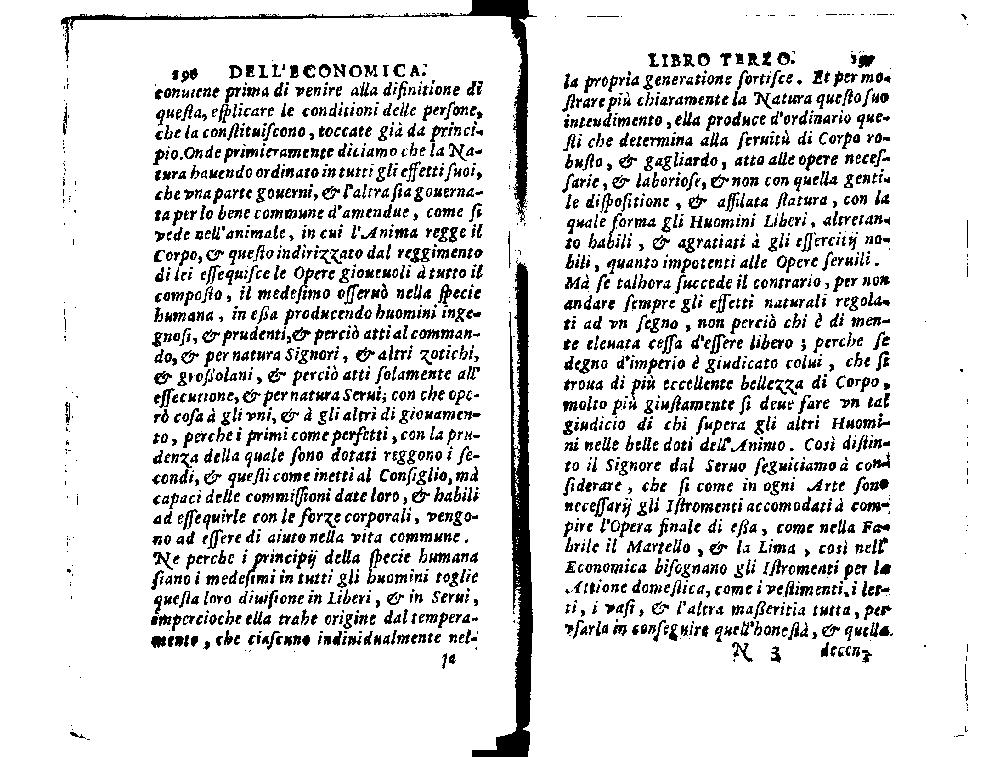 196 DELL'ECONOMICA.
conuiene prima di venire alla difinitione di
questa, esplicare le conditioni delle persone,
che la constituiscono, toccate già da princi-
pio. Onde primieramente diciamo che la Na-
tura hauendo ordinato in tutti gli effetti suoi,
che vna parte gouerni, & l'altra sia gouerna-
ta per lo bene commune d'amendue, come si
vede nell'animale, in cui l'Anima regge il
Corpo, & questo indirizzato dal reggimento
di lei essequisce le Opere gioueuoli à tutto il
composto, il medesimo osseruò nella specie
humana, in essa producendo huomini inge-
gnosi, & prudenti, & perciò atti al comman-
do, & per natura Signori, & altri zotichi,
& grossolani, & perciò atti solamente all'
essecutione, & per natura Serui; con che ope-
rò cosa à gli vni, & à gli altri di giouamen-
to, perche i primi come perfetti, con la pru-
denza della quale sono dotati reggono i se-
condi, & questi come inetti al Consiglio, mà
capaci delle commissioni date loro, & habili
ad essequirle con le forze corporali, vengo-
no ad essere di aiuto nella vita commune.
Ne perche i principij della specie humana
siano i medesimi in tutti gli huomini toglie
questa loro diuisione in Liberi, & in Serui,
impercioche ella trahe origine dal tempera-
mento, che ciascuno indiuidualmente nel-
la
LIBRO TERZO. 197
la propria generatione sortisce. Et per mo-
strare più chiaramente la Natura questo suo
intendimento, ella produce d'ordinario que-
sti che determina alla seruitù di Corpo ro-
busto, & gagliardo, atto alle opere neces-
sarie, & laboriose, & non con quella genti-
le dispositione, & affilata statura, con la
quale forma gli Huomini Liberi, altretan-
to habili, & agratiati à gli essercitij no-
bili, quanto impotenti alle Opere seruili.
Mà se talhora succede il contrario, per non
andare sempre gli effetti naturali regola-
ti ad vn segno, non perciò chi è di men-
te eleuata cessa d'essere libero; perche se
degno d'imperio è giudicato colui, che si
troua di più eccellente bellezza di Corpo,
molto più giustamente si deue fare vn tal
giudicio di chi supera gli altri Huomi-
ni nelle belle doti dell'Animo. Così distin-
to il Signore dal Seruo seguitiamo à con-
siderare, che si come in ogni Arte sono
necessarij gli Istromenti accomodati à com-
pire l'Opera finale di essa, come nella Fa-
brile il Martello, & la Lima, così nell'
Economica bisognano gli Istromenti per la
Attione domestica, come i vestimenti, i let-
ti, i vasi, & l'altra masseritia tutta, per
vsarla in conseguire quell'honestà, & quella
N 3 decen-